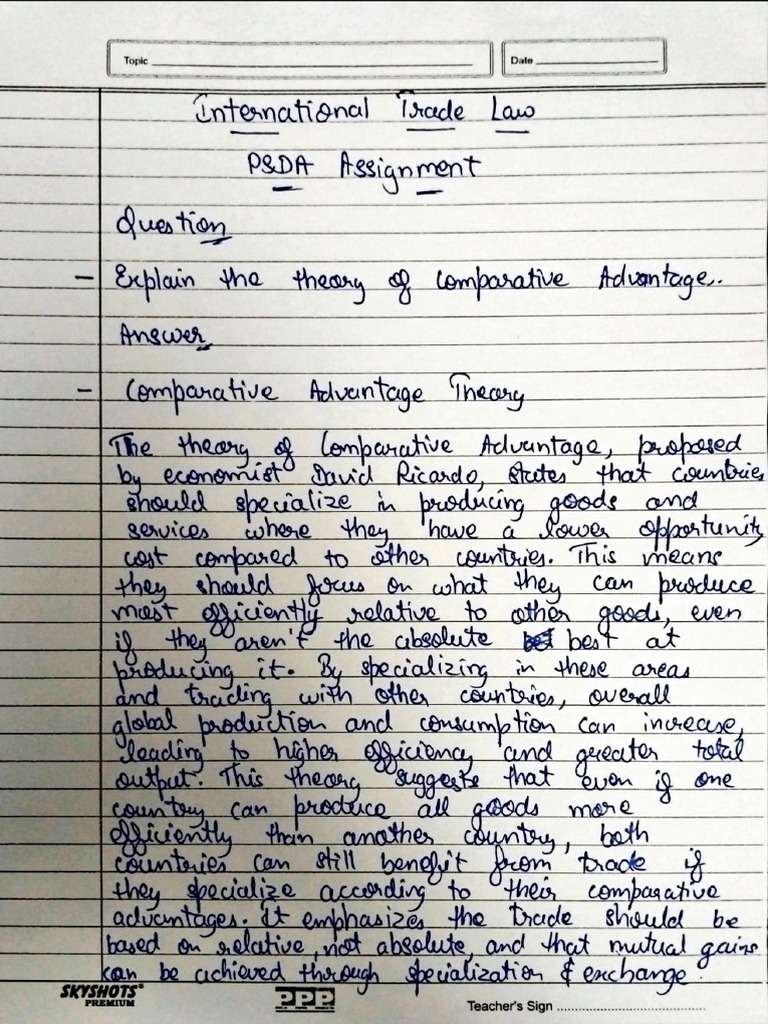 Topic
Date
International Trade Law
PSDA Assignment
Question
- Explain the theory of Comparative Advantage..
Answer
- Comparative Advantage Theory
The theory of Comparative Advantage, proposed
by economist David Ricardo, states that countries
should specialize in producing goods and
services where they have a lower opportunity
cost compared to other countries. This means
they should focus on what they can produce
most efficiently relative to other goods, even
if they aren't the absolute best at
producing it. By specializing in these areas
and trading with other countries, overall
global production and consumption can increase,
leading to higher efficiency and greater total
output. This theory suggests that even if one
country can produce all goods more
efficiently than another country, both
countries can still benefit from trade if
they specialize according to their comparative
advantages. It emphasizes the trade should be
based on relative, not absolute, and that mutual gains
can be achieved through specialization & exchange.
SKYSHOTS
PREMIUM
PPP
Teacher's Sign